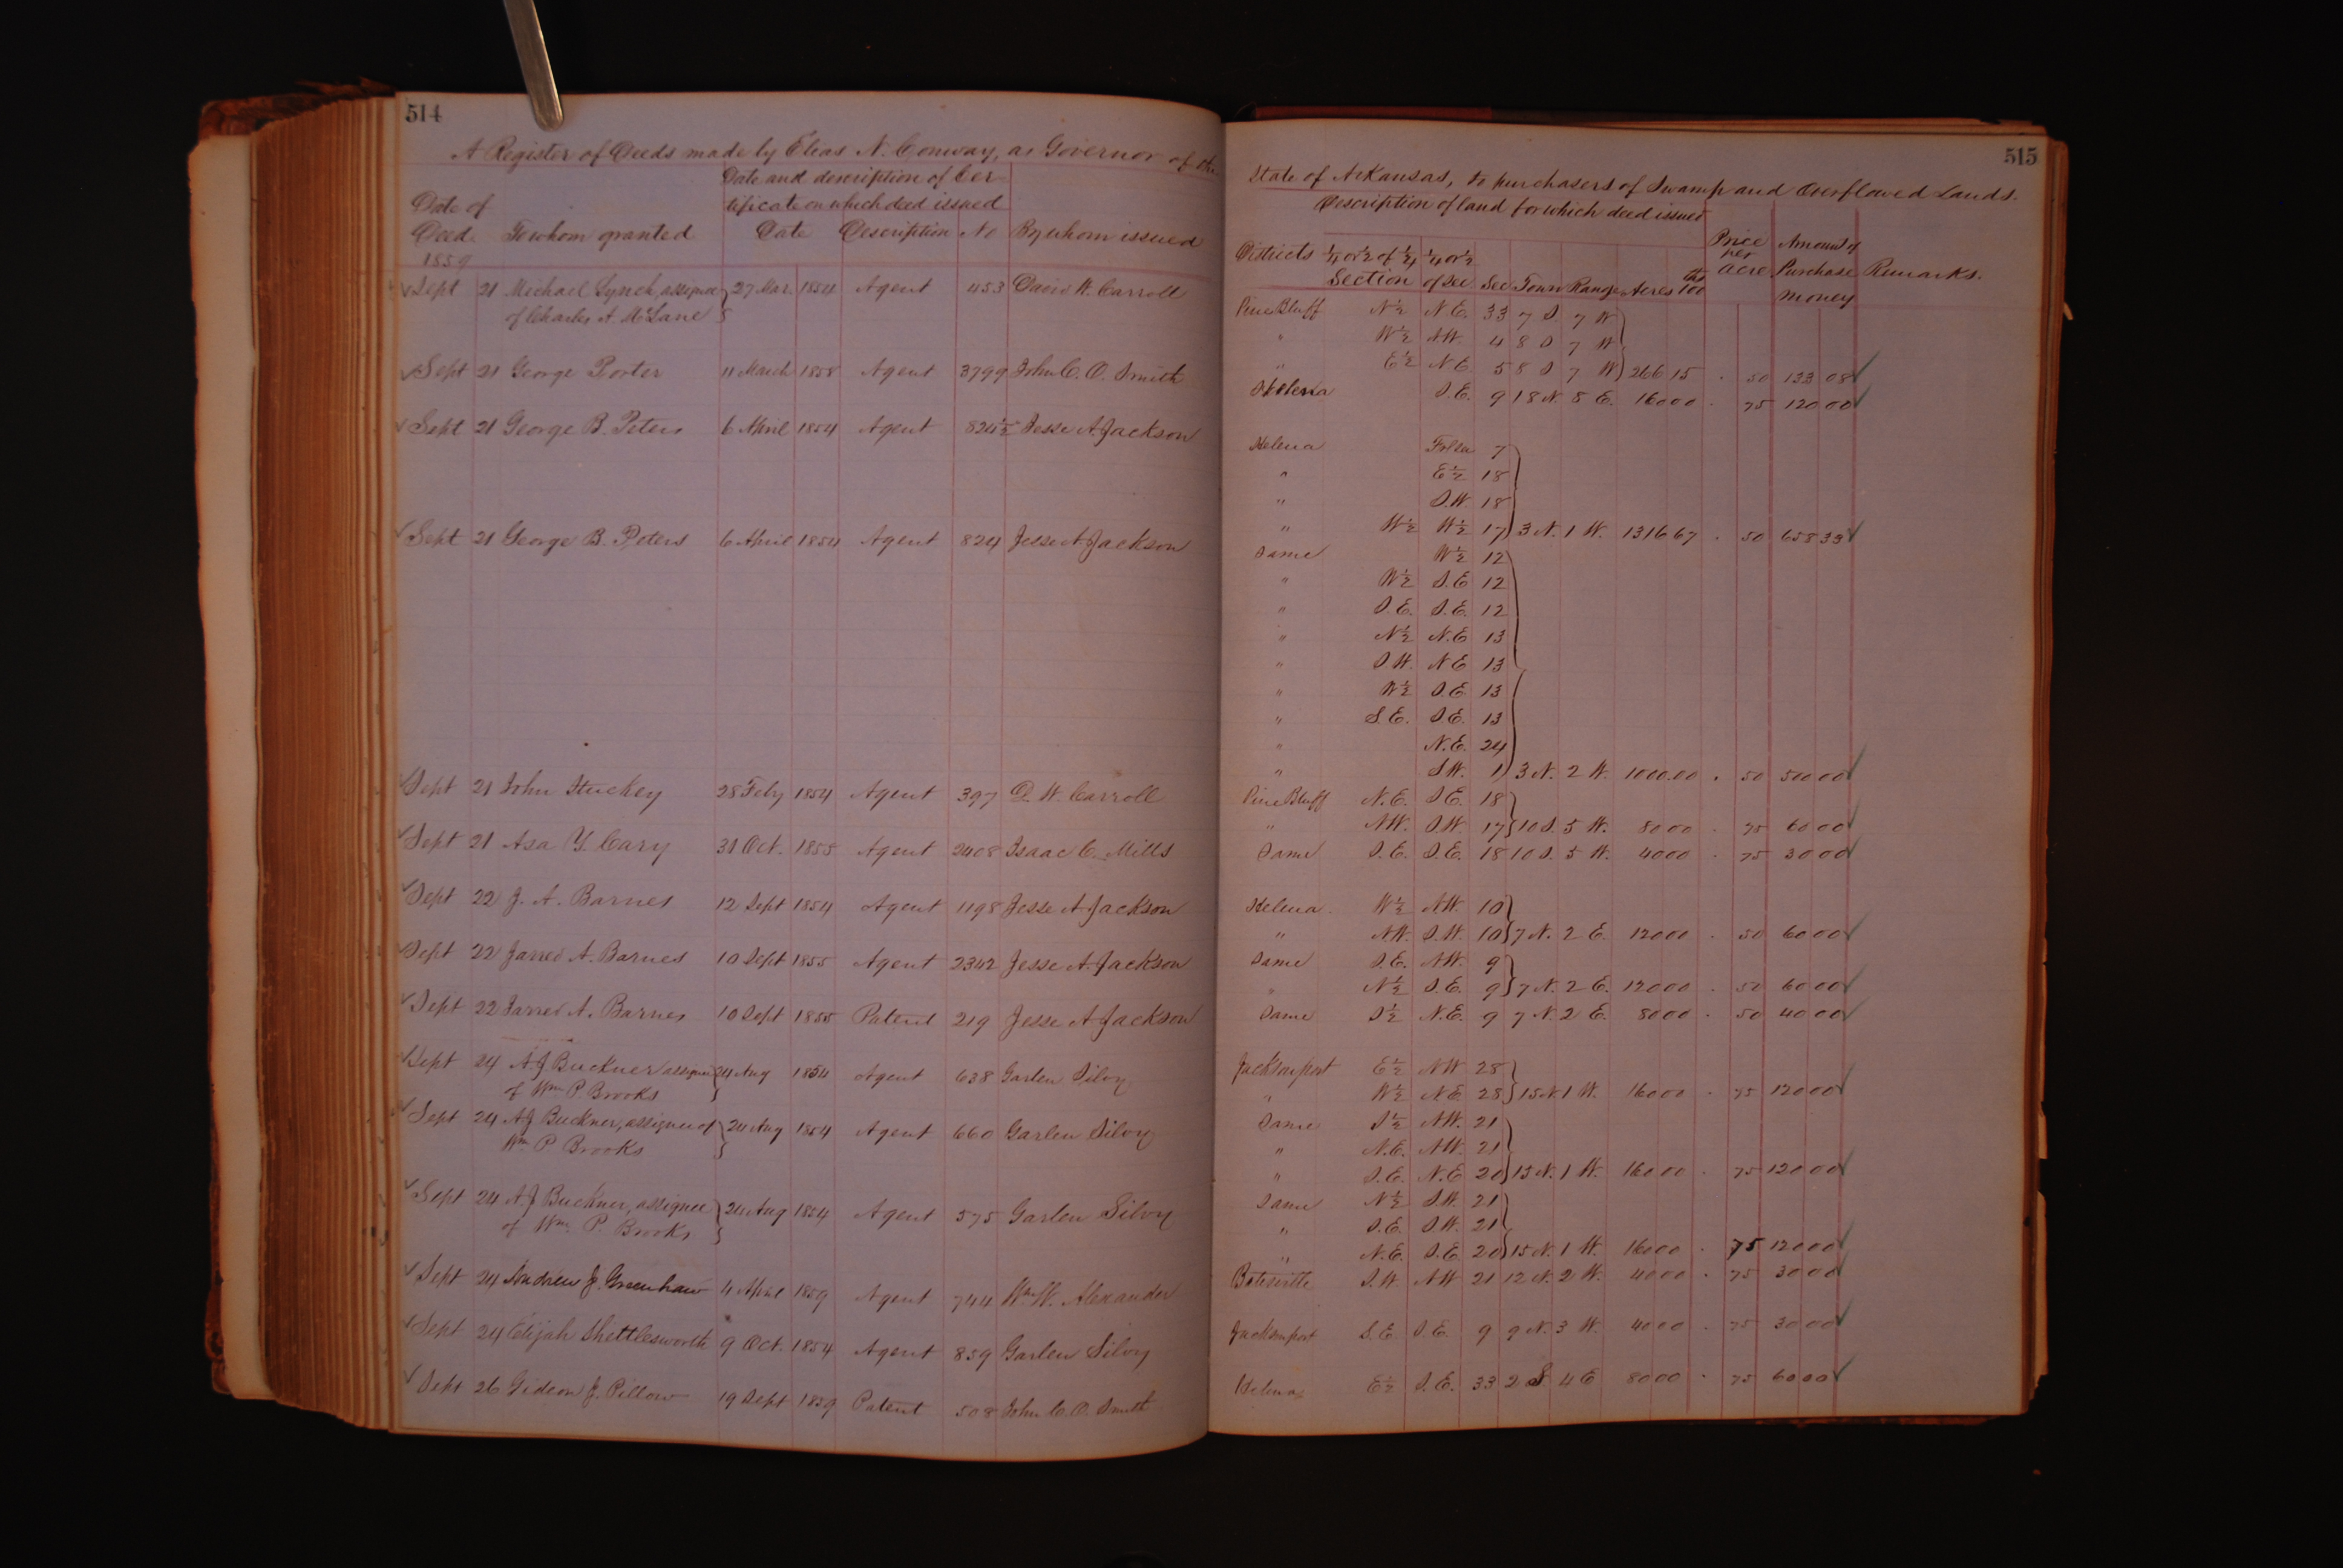 514
A Register of Deeds made by Elias N. Conway, as Governor of the
Date and description of Cer-
tificate on which deed issued
Date of
Deed. To whom granted Date Description No By whom issued
1859
Sept 21 Michael Lynch, assignee 27 Mar. 1854 Agent 453 David W. Carroll
of Charles A. McLane
Sept 21 George Porter 11 March 1858 Agent 3799 John C. O. Smith
Sept 21 George B. Peters 6 April 1854 Agent 824½ Jesse A. Jackson
Sept 21 George B. Peters 6 April 1854 Agent 824 Jesse A. Jackson
Sept 21 John Stuckey 28 Feby 1854 Agent 397 D. W. Carroll
Sept 21 Asa Y. Cary 31 Oct. 1855 Agent 2408 Isaac C. Mills
Sept 22 J. A. Barnes 12 Sept 1854 Agent 1198 Jesse A. Jackson
Sept 22 Jarred A. Barnes 10 Sept 1855 Agent 2342 Jesse A. Jackson
Sept 22 Jarred A. Barnes 10 Sept 1855 Patent 219 Jesse A. Jackson
Sept 24 A J Buckner assignee 24 Aug 1854 Agent 638 Garlen Silvy
of Wm P. Brooks
Sept 24 A J Buckner, assignee of 24 Aug 1854 Agent 660 Garlen Silvy
Wm P. Brooks
Sept 24 A J Buckner, assignee 24 Aug 1854 Agent 575 Garlen Silvy
of Wm P. Brooks
Sept 24 Andrew J. Greenhaw 4 April 1859 Agent 744 Wm W. Alexander
Sept 24 Elijah Shettlesworth 9 Oct. 1854 Agent 859 Garlen Silvy
Sept 26 Gideon J. Pillow 19 Sept 1859 Patent 508 John C. O. Smith
515
State of Arkansas, to purchasers of Swamp and Overflowed Lands.
Description of land for which deed issued
Districts ¼ or ½ of ¼ ¼ or ½ Price per Amount of
Section of Sec. Sec Town Range Acres ths 100 acre Purchase Remarks.
money
Pine Bluff N½ N.E. 33 7 S. 7 W
" W½ N.W. 4 8 S 7 W
" E½ N.E. 5 8 S 7 W 266 15 . 50 133 08
Helena S.E. 9 18 N. 8 E. 160 00 . 75 120 00
Helena Frl Sec 7
" E½ 18
" S.W. 18
" W½ W½ 17 3 N. 1 W. 1316 67 . 50 658 33
Same W½ 12
" W½ S.E 12
" S.E. S.E. 12
" N½ N.E 13
" S.W. N.E 13
" W½ S.E 13
" S.E. S.E. 13
" N.E. 24
" S.W. 1 3 N. 2 W. 1000.00 . 50 500 00
Pine Bluff N.E. S.E. 18
" N.W. S.W. 17 10 S. 5 W. 80 00 . 75 60 00
Same S.E. S.E. 18 10 S. 5 W. 40 00 . 75 30 00
Helena W½ N.W. 10
" N.W. S.W. 10 7 N. 2 E. 120 00 . 50 60 00
Same S.E. N.W. 9
" N½ S.E. 9 7 N. 2 E. 120 00 . 50 60 00
Same S½ N.E. 9 7 N. 2 E. 80 00 . 50 40 00
Jacksonport E½ N.W 28
" W½ N.E. 28 15 N. 1 W. 160 00 . 75 120 00
Same S½ N.W. 21
" N.E. N.W. 21
" S.E. N.E 20 15 N. 1 W. 160 00 . 75 120 00
Same N½ S.W. 21
" S.E. S.W. 21
" N.E. S.E 20 15 N. 1 W. 160 00 . 75 120 00
Batesville S.W. N.W 21 12 N. 2 W. 40 00 . 75 30 00
Jacksonport S.E. S.E. 9 9 N. 3 W. 40 00 . 75 30 00
Helena E½ S.E. 33 2 S 4 E 80 00 . 75 60 00